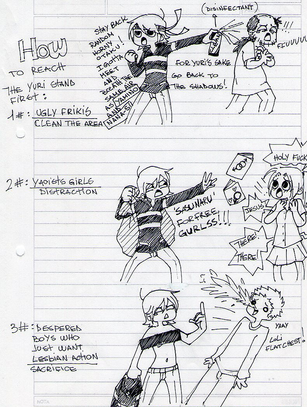 How
TO REACH
THE YURI STAND
FIRST:
1#: UGLY FRIKIS
CLEAN THE AREA
STAY BACK
RANDOM
HORNY
OTAKU!
I GOTTA
MEET
AND
BREATH THE
SAME AIR
AS
DISINFECTANT
FOR YURI'S SAKE
GO BACK TO
THE SHADOWS!
2#: YAOISTS GIRLS
DISTRACTION
'SASUNARU'
FOR FREE
GURLSS!!!
HOLY FUCK
JESUS!
THERE!
THERE!
3#: DESPERED
BOYS WHO
JUST WANT
LESBIAN ACTION
SACRIFICE
YAAY
LOLI
FLATCHEST